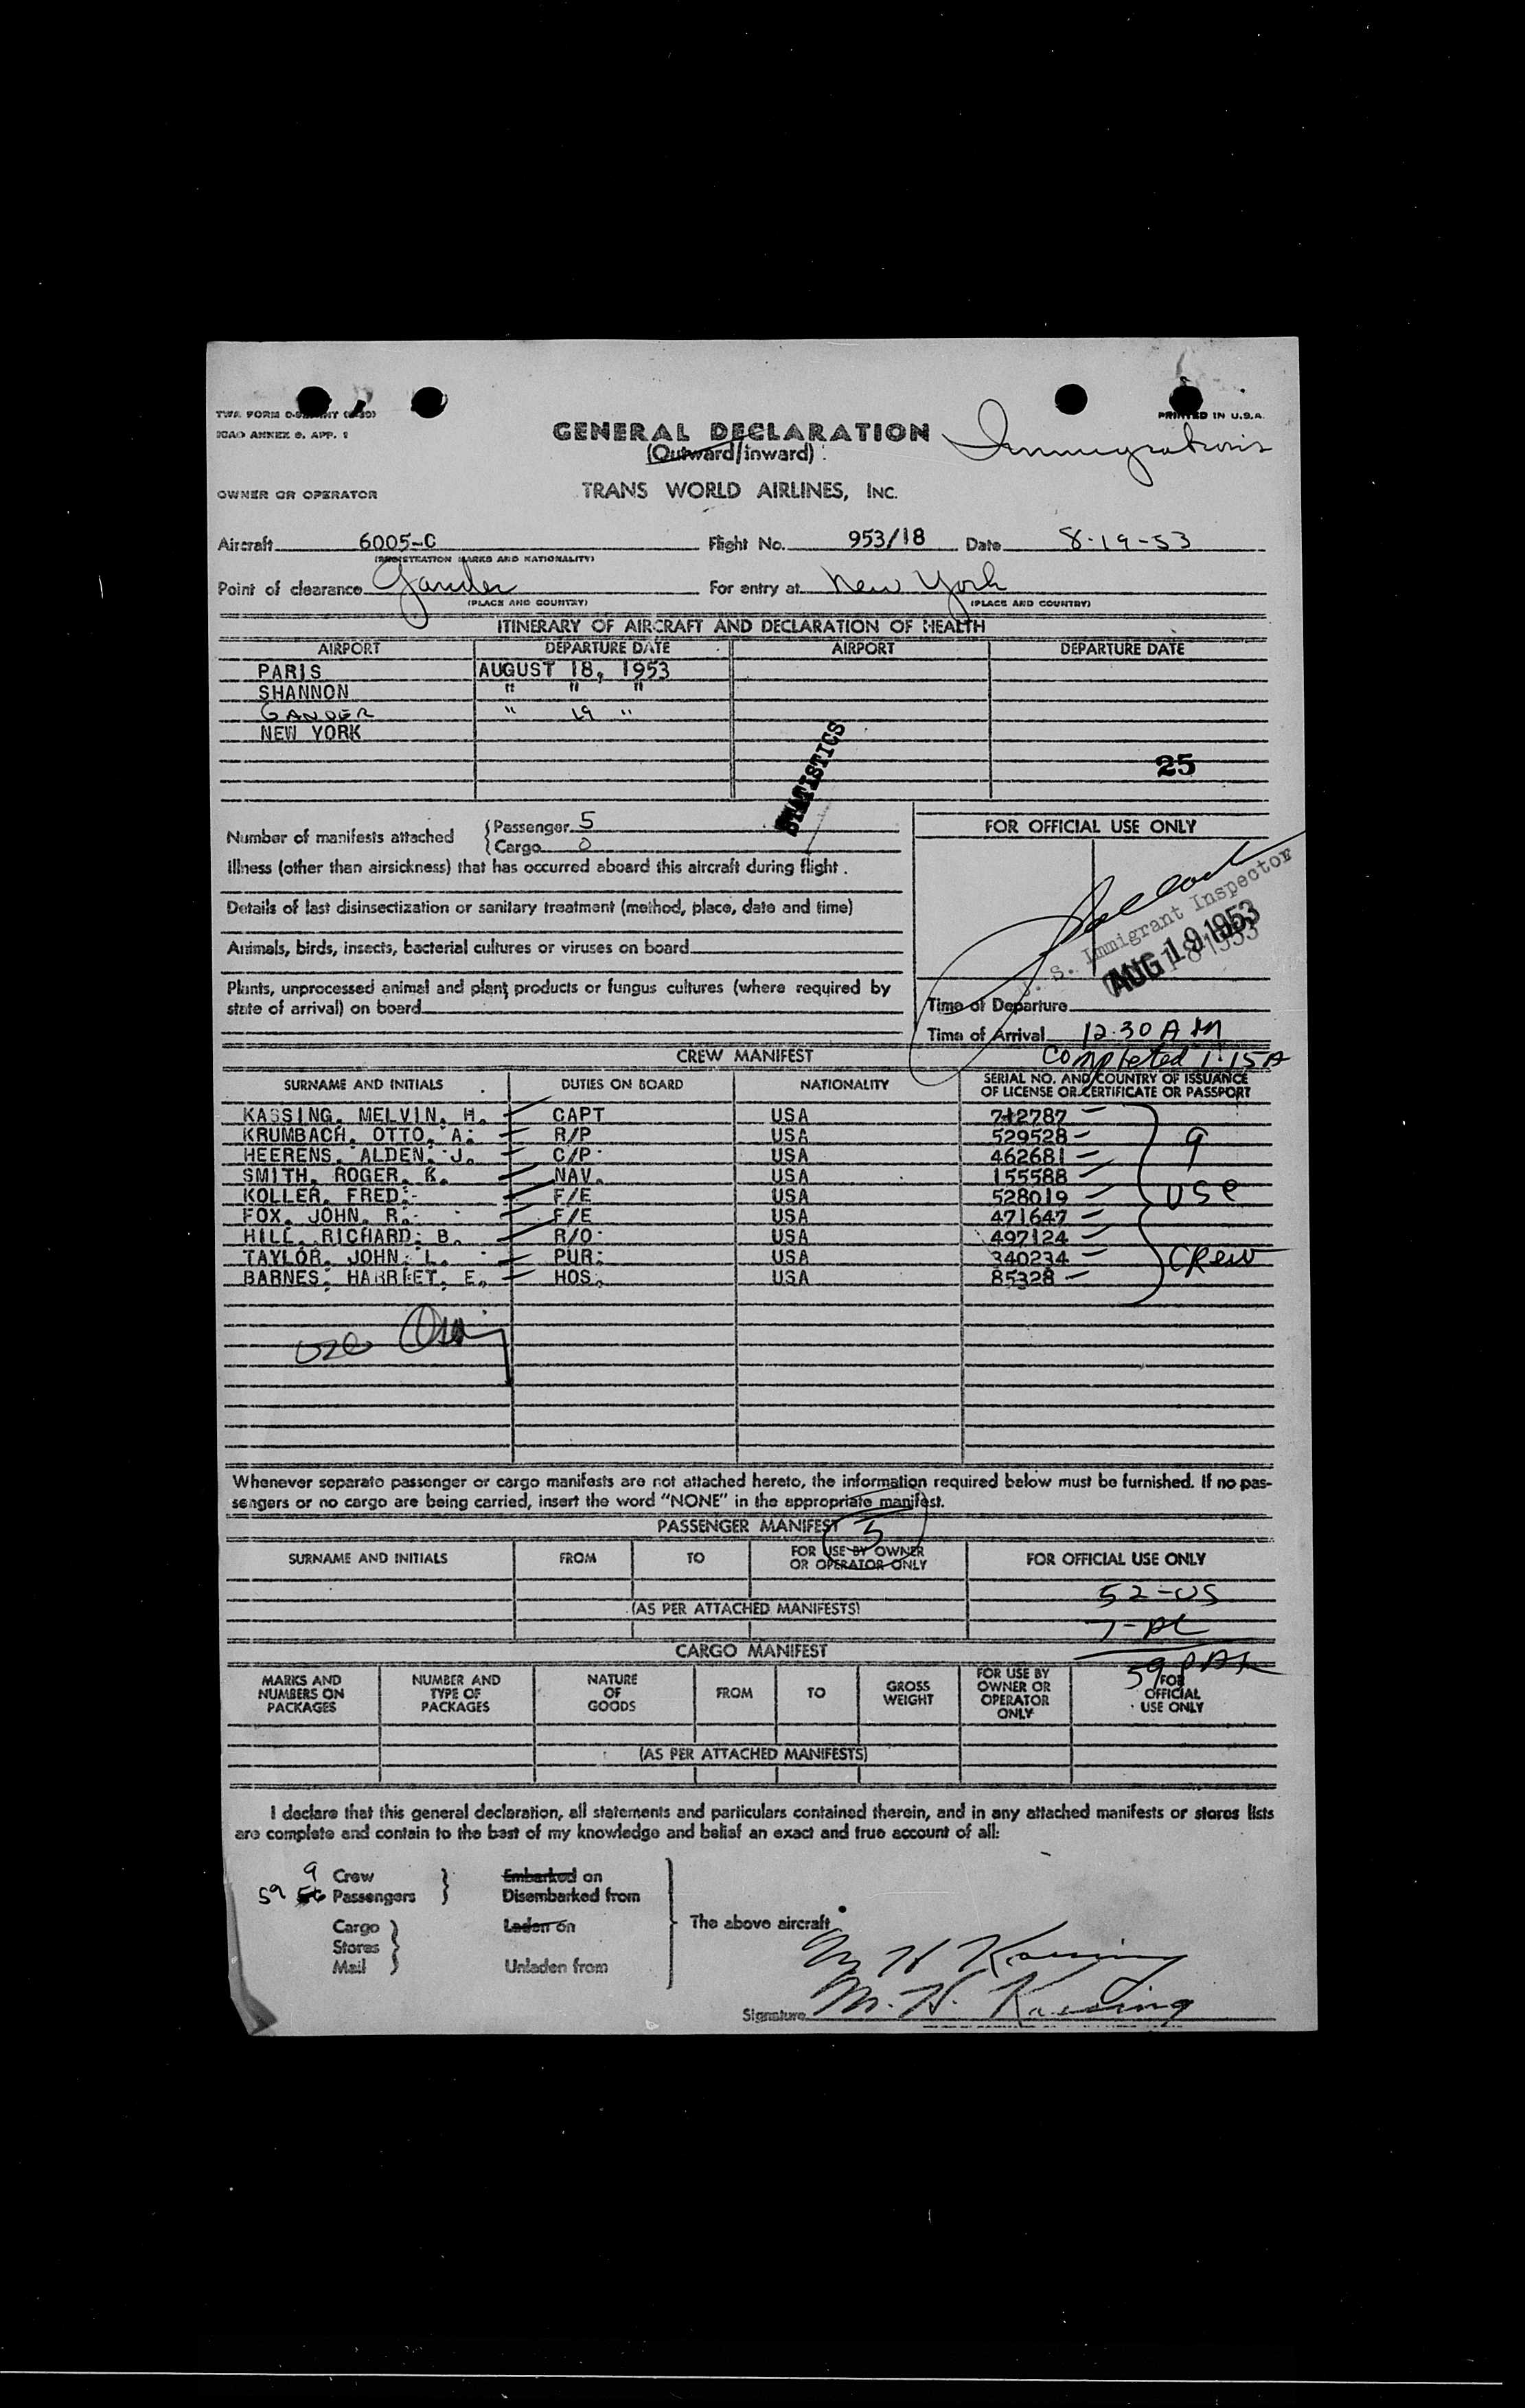 PRINTED IN U.S.A.
ICAO ANNEX 9, APP. 1
GENERAL DECLARATION
(Outward/inward)
Immigration
OWNER OR OPERATOR
TRANS WORLD AIRLINES, INC.
Aircraft 6005-C Flight No. 953/18 Date 8-19-53
(REGISTRATION MARKS AND NATIONALITY)
Point of clearance Gander For entry at New York
(PLACE AND COUNTRY) (PLACE AND COUNTRY)
ITINERARY OF AIRCRAFT AND DECLARATION OF HEALTH
AIRPORT DEPARTURE DATE AIRPORT DEPARTURE DATE
PARIS AUGUST 18, 1953
SHANNON " " "
GANDER " 19 "
NEW YORK
STATISTICS
25
Number of manifests attached
Passenger 5
Cargo 0
Illness (other than airsickness) that has occurred aboard this aircraft during flight.
Details of last disinsectization or sanitary treatment (method, place, date and time)
Animals, birds, insects, bacterial cultures or viruses on board
Plants, unprocessed animal and plant products or fungus cultures (where required by
state of arrival) on board
FOR OFFICIAL USE ONLY
U. S. Immigrant Inspector
AUG 19 1953
Time of Departure
Time of Arrival 12:30 AM
Completed 1:15 A
CREW MANIFEST
SURNAME AND INITIALS DUTIES ON BOARD NATIONALITY SERIAL NO. AND COUNTRY OF ISSUANCE
OF LICENSE OR CERTIFICATE OR PASSPORT
KASSING, MELVIN, H. CAPT USA 712787
KRUMBACH, OTTO, A. R/P USA 529528
HEERENS, ALDEN, J. C/P USA 462681
SMITH, ROGER, K. NAV. USA 155588
KOLLER, FRED. F/E USA 528019
FOX, JOHN, R. F/E USA 471647
HILL, RICHARD, B. R/O USA 497124
TAYLOR, JOHN, L. PUR. USA 340234
BARNES, HARRIET, E. HOS. USA 85328
9
USC
Crew
Whenever separate passenger or cargo manifests are not attached hereto, the information required below must be furnished. If no pas-
sengers or no cargo are being carried, insert the word "NONE" in the appropriate manifest.
PASSENGER MANIFEST 5
SURNAME AND INITIALS FROM TO FOR USE BY OWNER
OR OPERATOR ONLY FOR OFFICIAL USE ONLY
52-US
(AS PER ATTACHED MANIFESTS)
7-AL
59 PAX
CARGO MANIFEST
MARKS AND
NUMBERS ON
PACKAGES
NUMBER AND
TYPE OF
PACKAGES
NATURE
OF
GOODS
FROM
TO
GROSS
WEIGHT
FOR USE BY
OWNER OR
OPERATOR
ONLY
FOR
OFFICIAL
USE ONLY
(AS PER ATTACHED MANIFESTS)
I declare that this general declaration, all statements and particulars contained therein, and in any attached manifests or stores lists
are complete and contain to the best of my knowledge and belief an exact and true account of all:
9 Crew Embarked on
59 56 Passengers Disembarked from
Cargo Laden on
The above aircraft
Stores
Mail Unladen from
M H Kassing
Signature M. H. Kassing